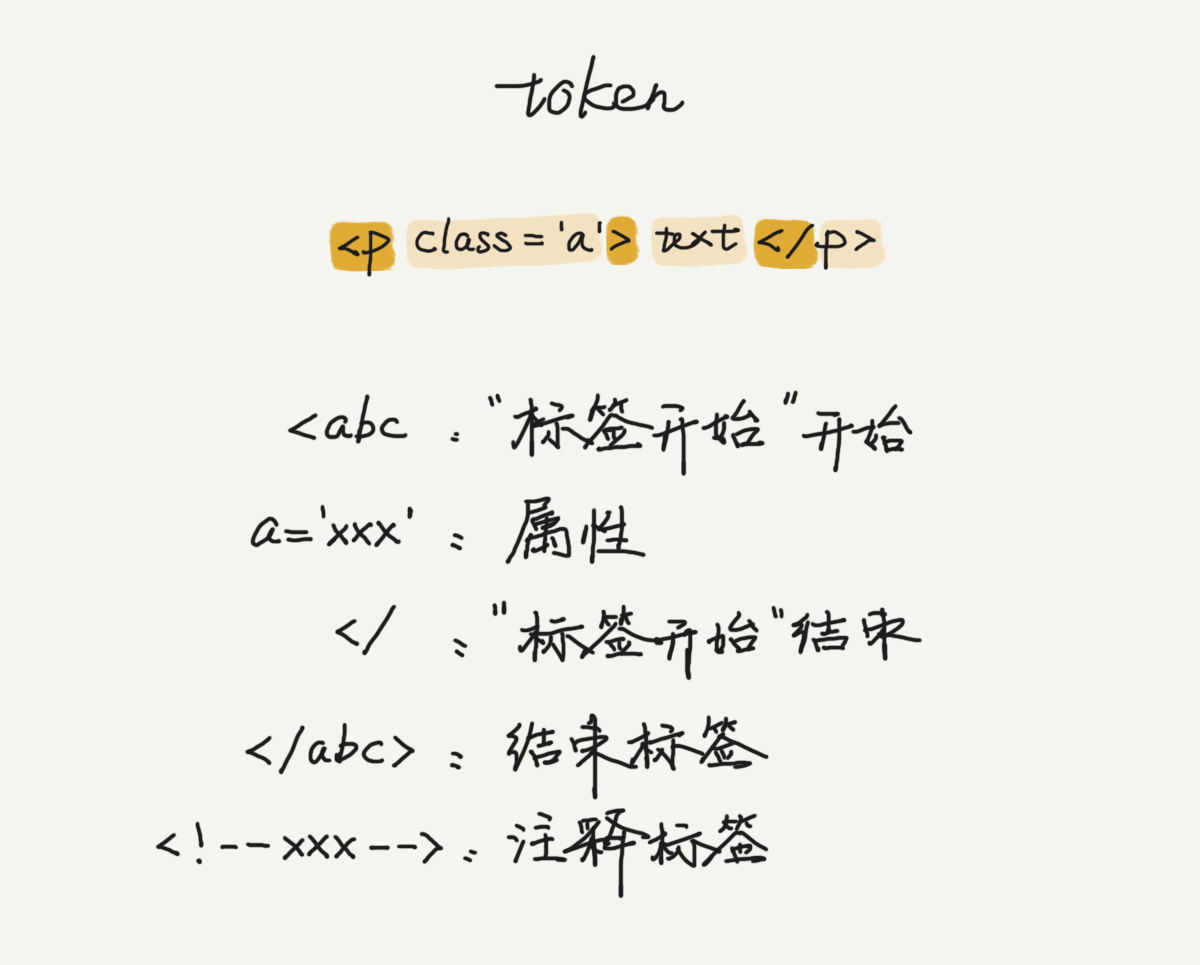 token
<p class='a'> text </p>
<abc : "标签开始"开始
a='xxx' : 属性
</ : "标签开始"结束
</abc> : 结束标签
<!--xxx--> : 注释标签